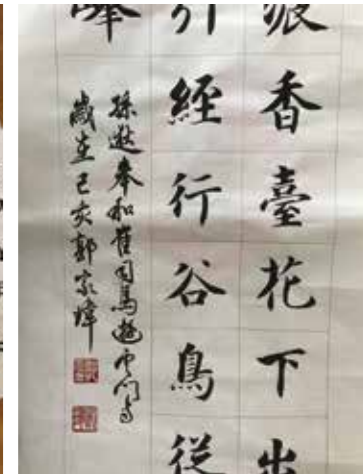 濃香臺花下出
引經行谷鳥從
峰
孫逖奉和崔司馬遊云門寺
歲在己亥郭家